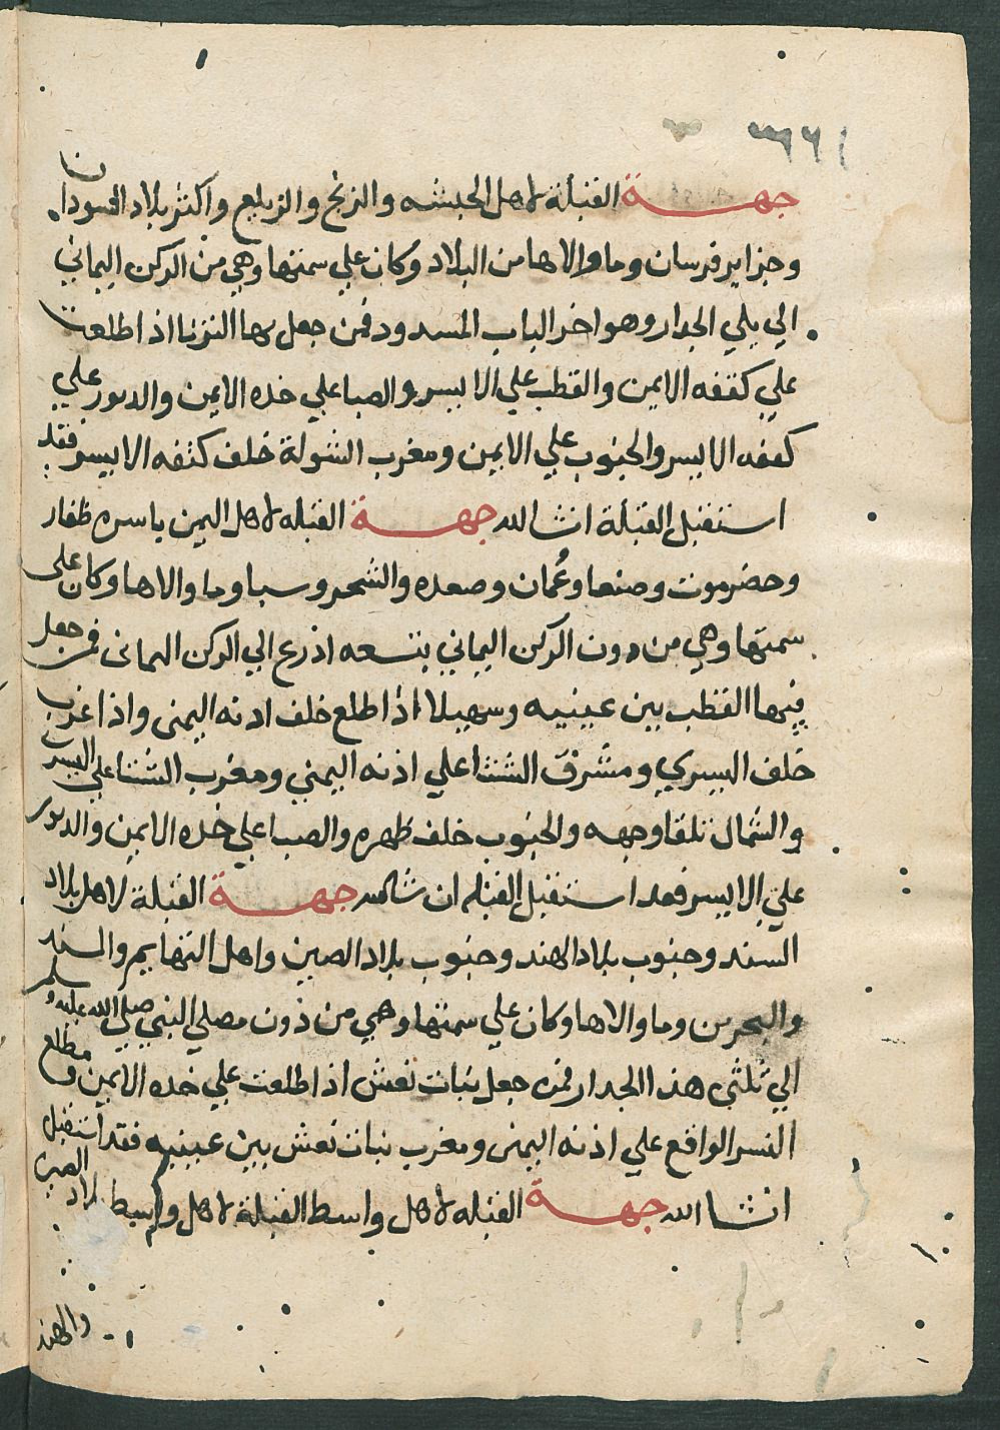 جهة القبلة لاهل الحبشه والزنج والزيلع واكثر بلاد السودان
وجزاير فرسان وما والاها من البلاد وكان علي سمتها وهي من الركن اليماني
الي يلي الجدار وهو اخر الباب المسدود فمن جعل بها الثريا اذا طلعت
علي كتفه الايمن والقطب علي الايسر والصبا علي خده الايمن والدبور علي
كتفه الايسر والجنوب علي الايمن ومغرب الشولة خلف كتفه الايسر فقد
استقبل القبلة انشا الله جهة القبله لاهل اليمن ياسره ظفار
وحضرموت وصنعا وعُمان وصعده والشحر وسبا وما والاها وكان علي
سمتها وهي من دون الركن اليماني بتسعه اذرع الي الركن اليماني فمن جعل
فيها القطب بين عينيه وسهيلا اذا طلع خلف اذنه اليمنى واذا غرب
خلف اليسري ومشرق الشتا علي اذنه اليمني ومغرب الشتا علي اليسرى
والشمال تلقا وجهه والجنوب خلف ظهره والصبا علي خده الايمن والدبور
علي الايسر فقد استقبل القبله ان شا الله جهة القبلة لاهل بلاد
السند وجنوب بلاد الهند وجنوب بلاد الصين واهل التهايم والسند
والبحرين وما والاها وكان علي سمتها وهي من دون مصلي النبي صلي الله عليه وسلم
الي ثلثي هذا الجدار فمن جعل بنات نعش اذا طلعت علي خده الايمن ومطلع
النسر الواقع علي اذنه اليمنى ومغرب بنات نعش بين عينيه فقد استقبل
انشا الله جهة القبله لاهل واسط القبلة لاهل واسط بلاد الصين
والهند